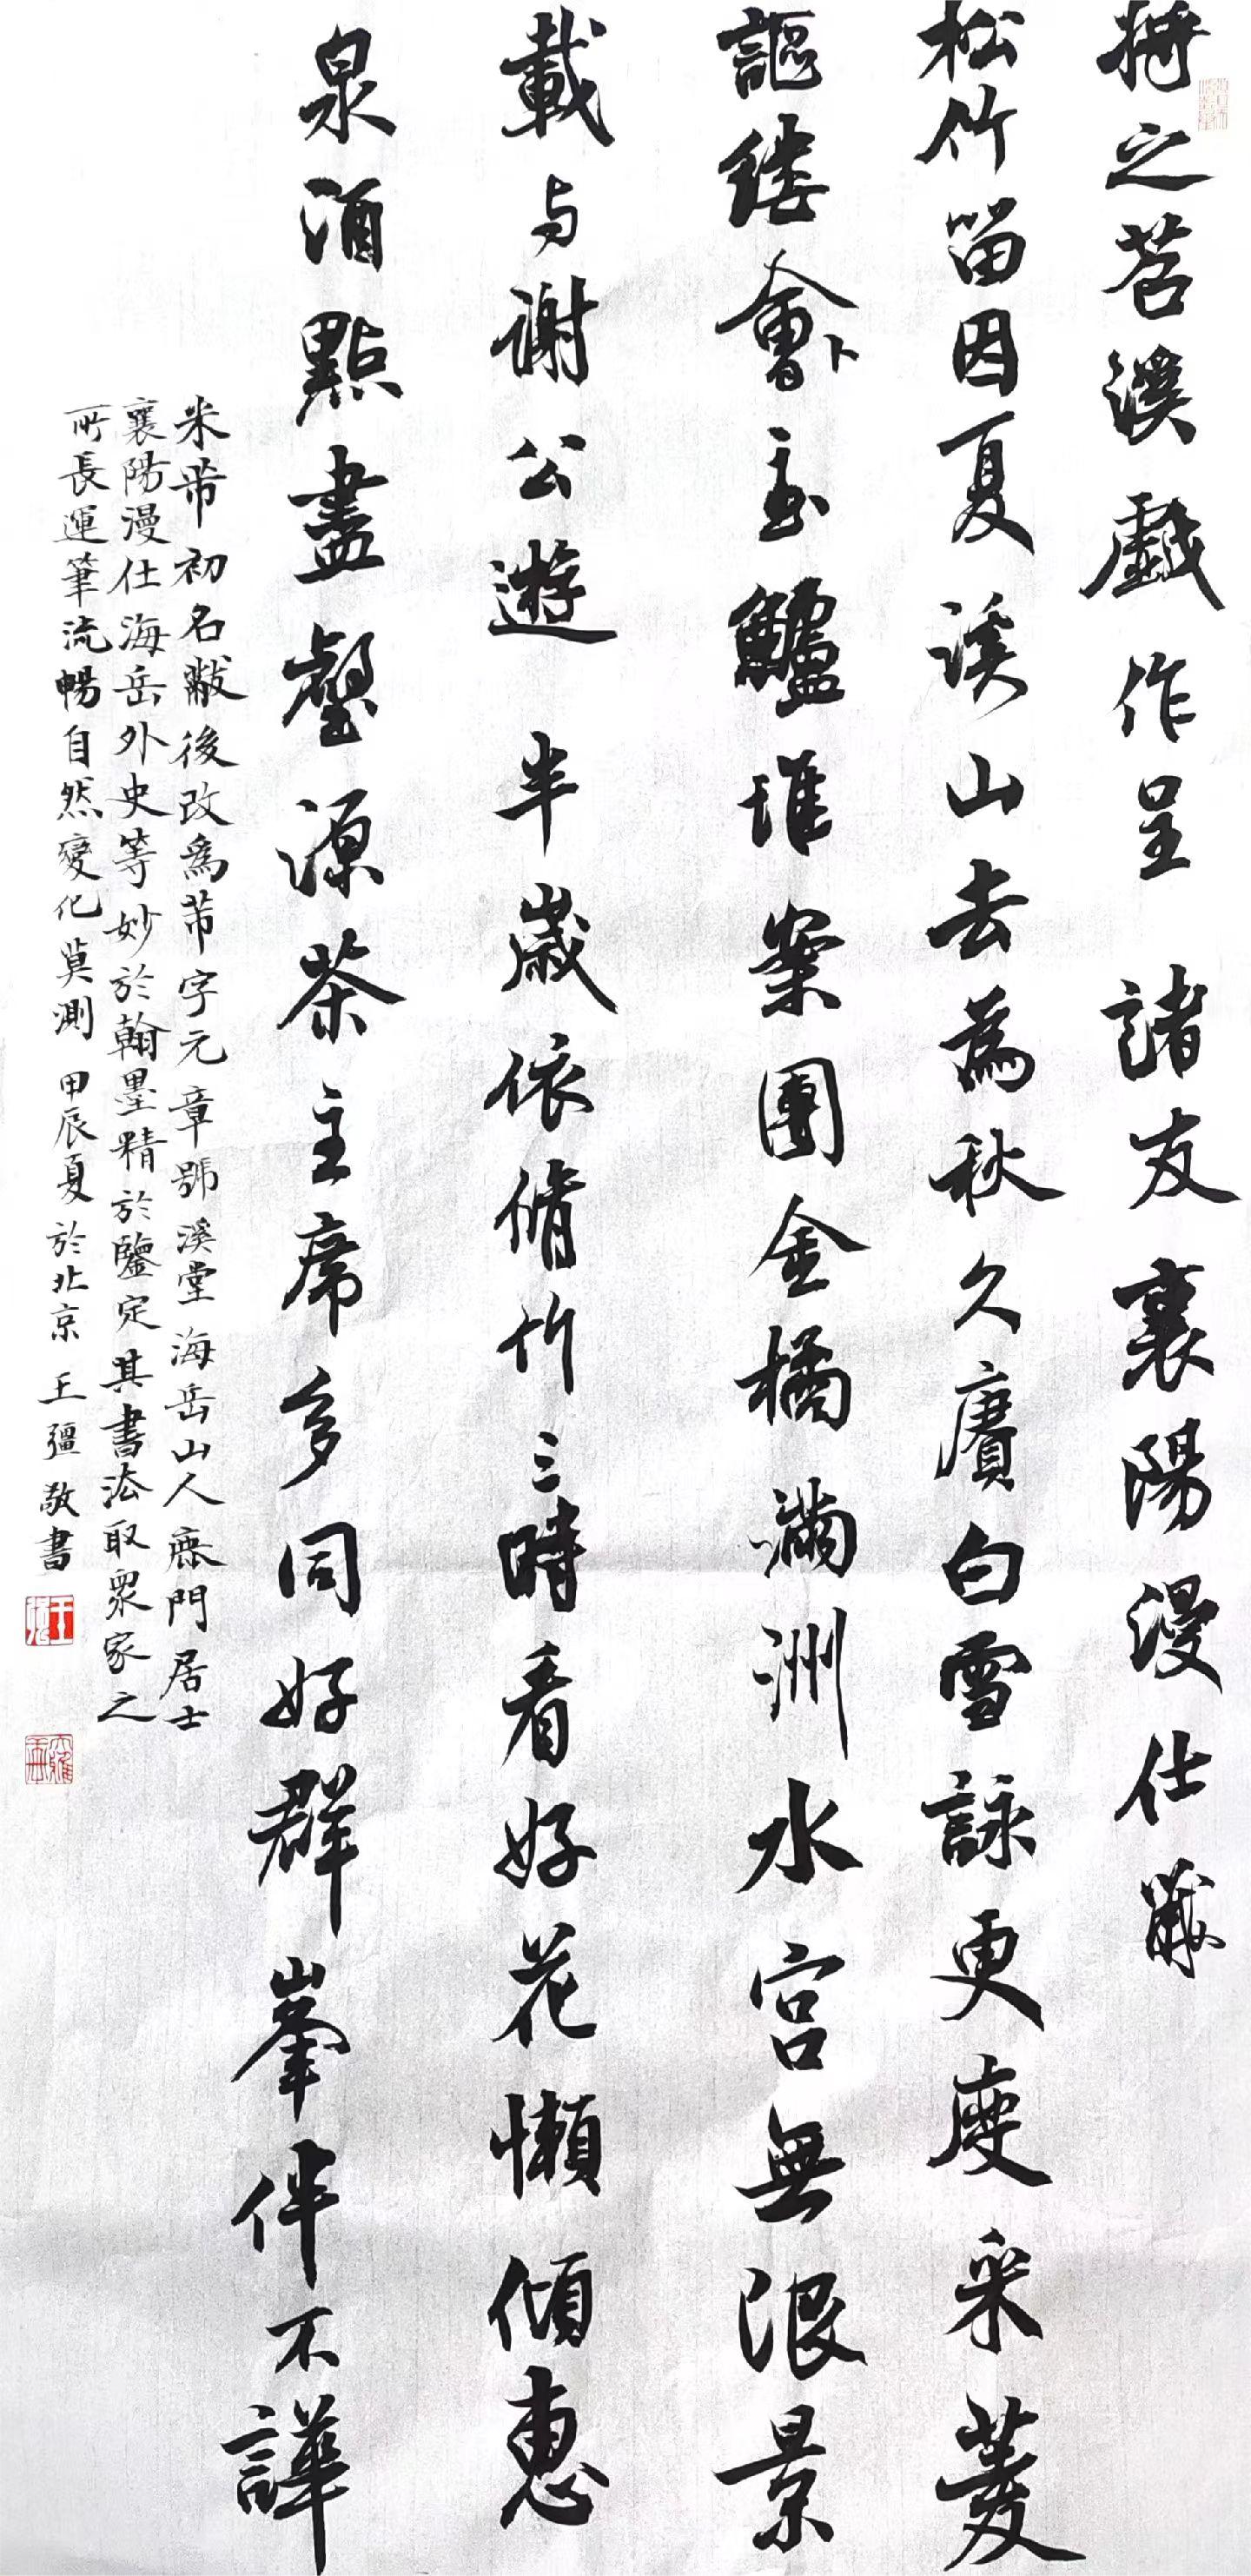 將之苕溪戲作呈諸友襄陽漫仕黻
松竹留因夏溪山去為秋久賡白雪詠更度采菱
謳縷會卜玉鱸堆案團金橘滿洲水宮無限景
載与謝公遊半歲依脩竹三時看好花懶傾惠
泉酒點盡壑源茶主席多同好群峯伴不譁
米芾初名黻後改為芾字元章號溪堂海岳山人鹿門居士
襄陽漫仕海岳外史等妙於翰墨精於鑒定其書法取眾家之
所長運筆流暢自然變化莫測甲辰夏於北京王彊敬書